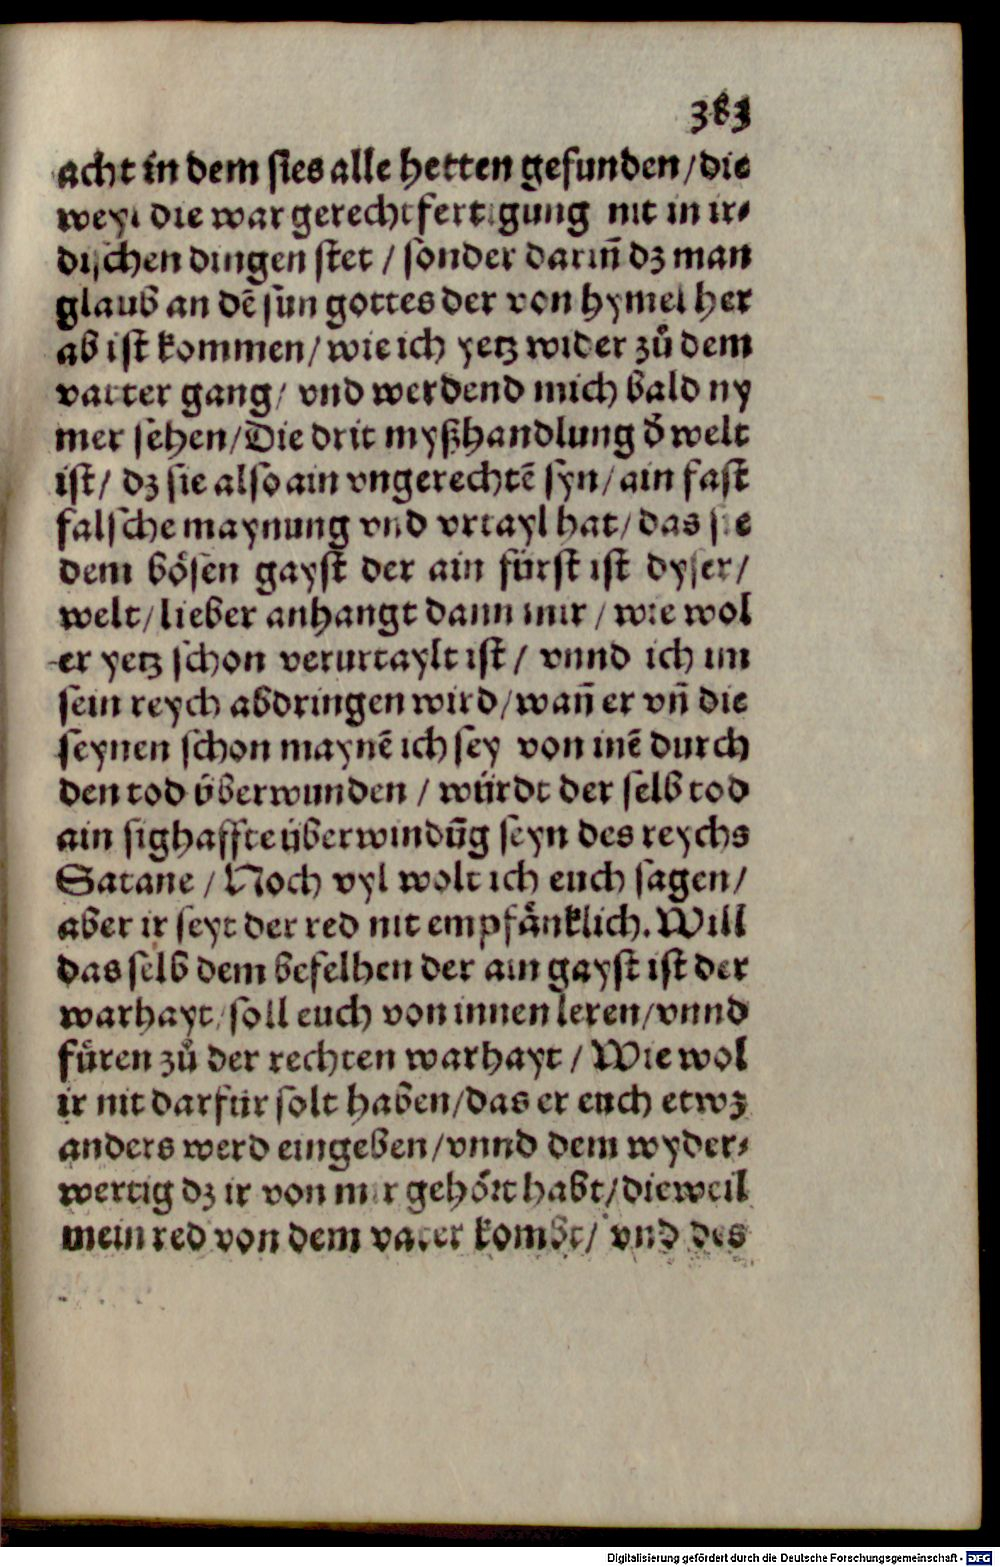 383
acht in dem sies alle hetten gefunden/die
weyl die war gerechtfertigung nit in ir⸗
dischen dingen stet / sonder dariñ dz man
glaub an dē sun gottes der von hymel her
ab ist kommen/wie ich yetz wider zů dem
vatter gang/ vnd werdend mich bald ny
mer sehen/Die drit myßhandlung ð welt
ist/ dz sie also ain vngerechtē syn/ain fast
falsche maynung vnd vrtayl hat/das sie
dem bösen gayst der ain fürst ist dyser/
welt/lieber anhangt dann mir / wie wol
er yetz schon verurtaylt ist/ vnnd ich im
sein reych abdringen wird/wañ er vñ die
seynen schon maynē ich sey von inē durch
den tod überwunden / würdt der selb tod
ain sighaffte überwindũg seyn des reychs
Satane / Noch vyl wolt ich euch sagen/
aber ir seyt der red nit empfänklich. Will
das selb dem befelhen der ain gayst ist der
warhayt/soll euch von innen leren/vnnd
füren zů der rechten warhayt / Wie wol
ir nit darfür solt haben/das er euch etwz
anders werd eingeben/vnnd dem wyder⸗
wertig dz ir von mir gehört habt/dieweil
mein red von dem vater kombt/ vnd des
Digitalisierung gefördert durch die Deutsche Forschungsgemeinschaft - DFG